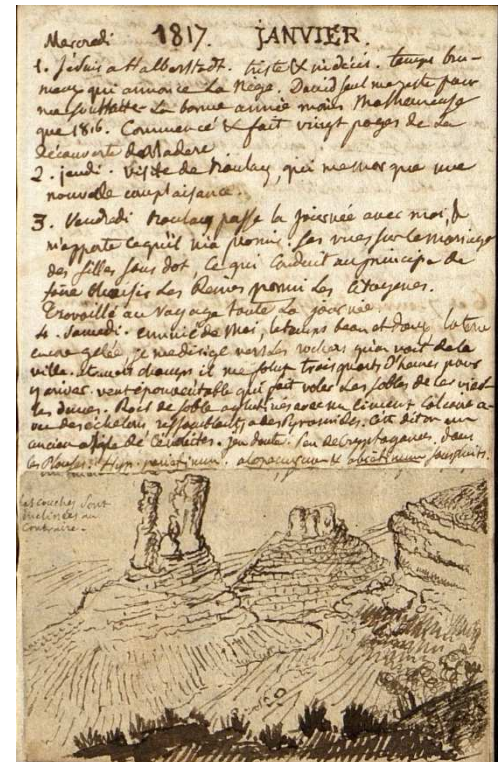 Mercredi 1817. JANVIER.
1. Je suis a Halberstadt. triste & indécis. temps bru-
meux qui annonce La Neige. David seul me reste pour
me souhaiter La bonne année moins Malheureuse
que 1816. Commencé & fait vingt pages de La
découverte de Madere
2. jeudi. visite de Roulay, qui me que une
nouvelle complaisance.
3. Vendredi Roulay passe la journée avec moi, &
m'apporte ce qu'il m'a promis. Ses vues sur le Mariage
des filles sans dot, ce qui conduit au principe de
faire choisir Les Reines parmi les Citoyenes.
Travaillé au Voyage toute La journée.
4. Samedi. ennuié de Moi, le temps beau et doux, la terre
encore gelée, je me dirige vers les rochers qu'on voit de la
ville. me falut trois quarts D'heures pour
y ariver. vent épouvantable qui fait voler les sables de
les dunes. Rocs de sable agglutinés avec un ciment Calcaire
des échelons ressemblants a des Pyramides. dit on un
ancien asyle de. j'en doute. peu de cryptogames, dans
les.
les couches sont
inclinées au
Contraire.